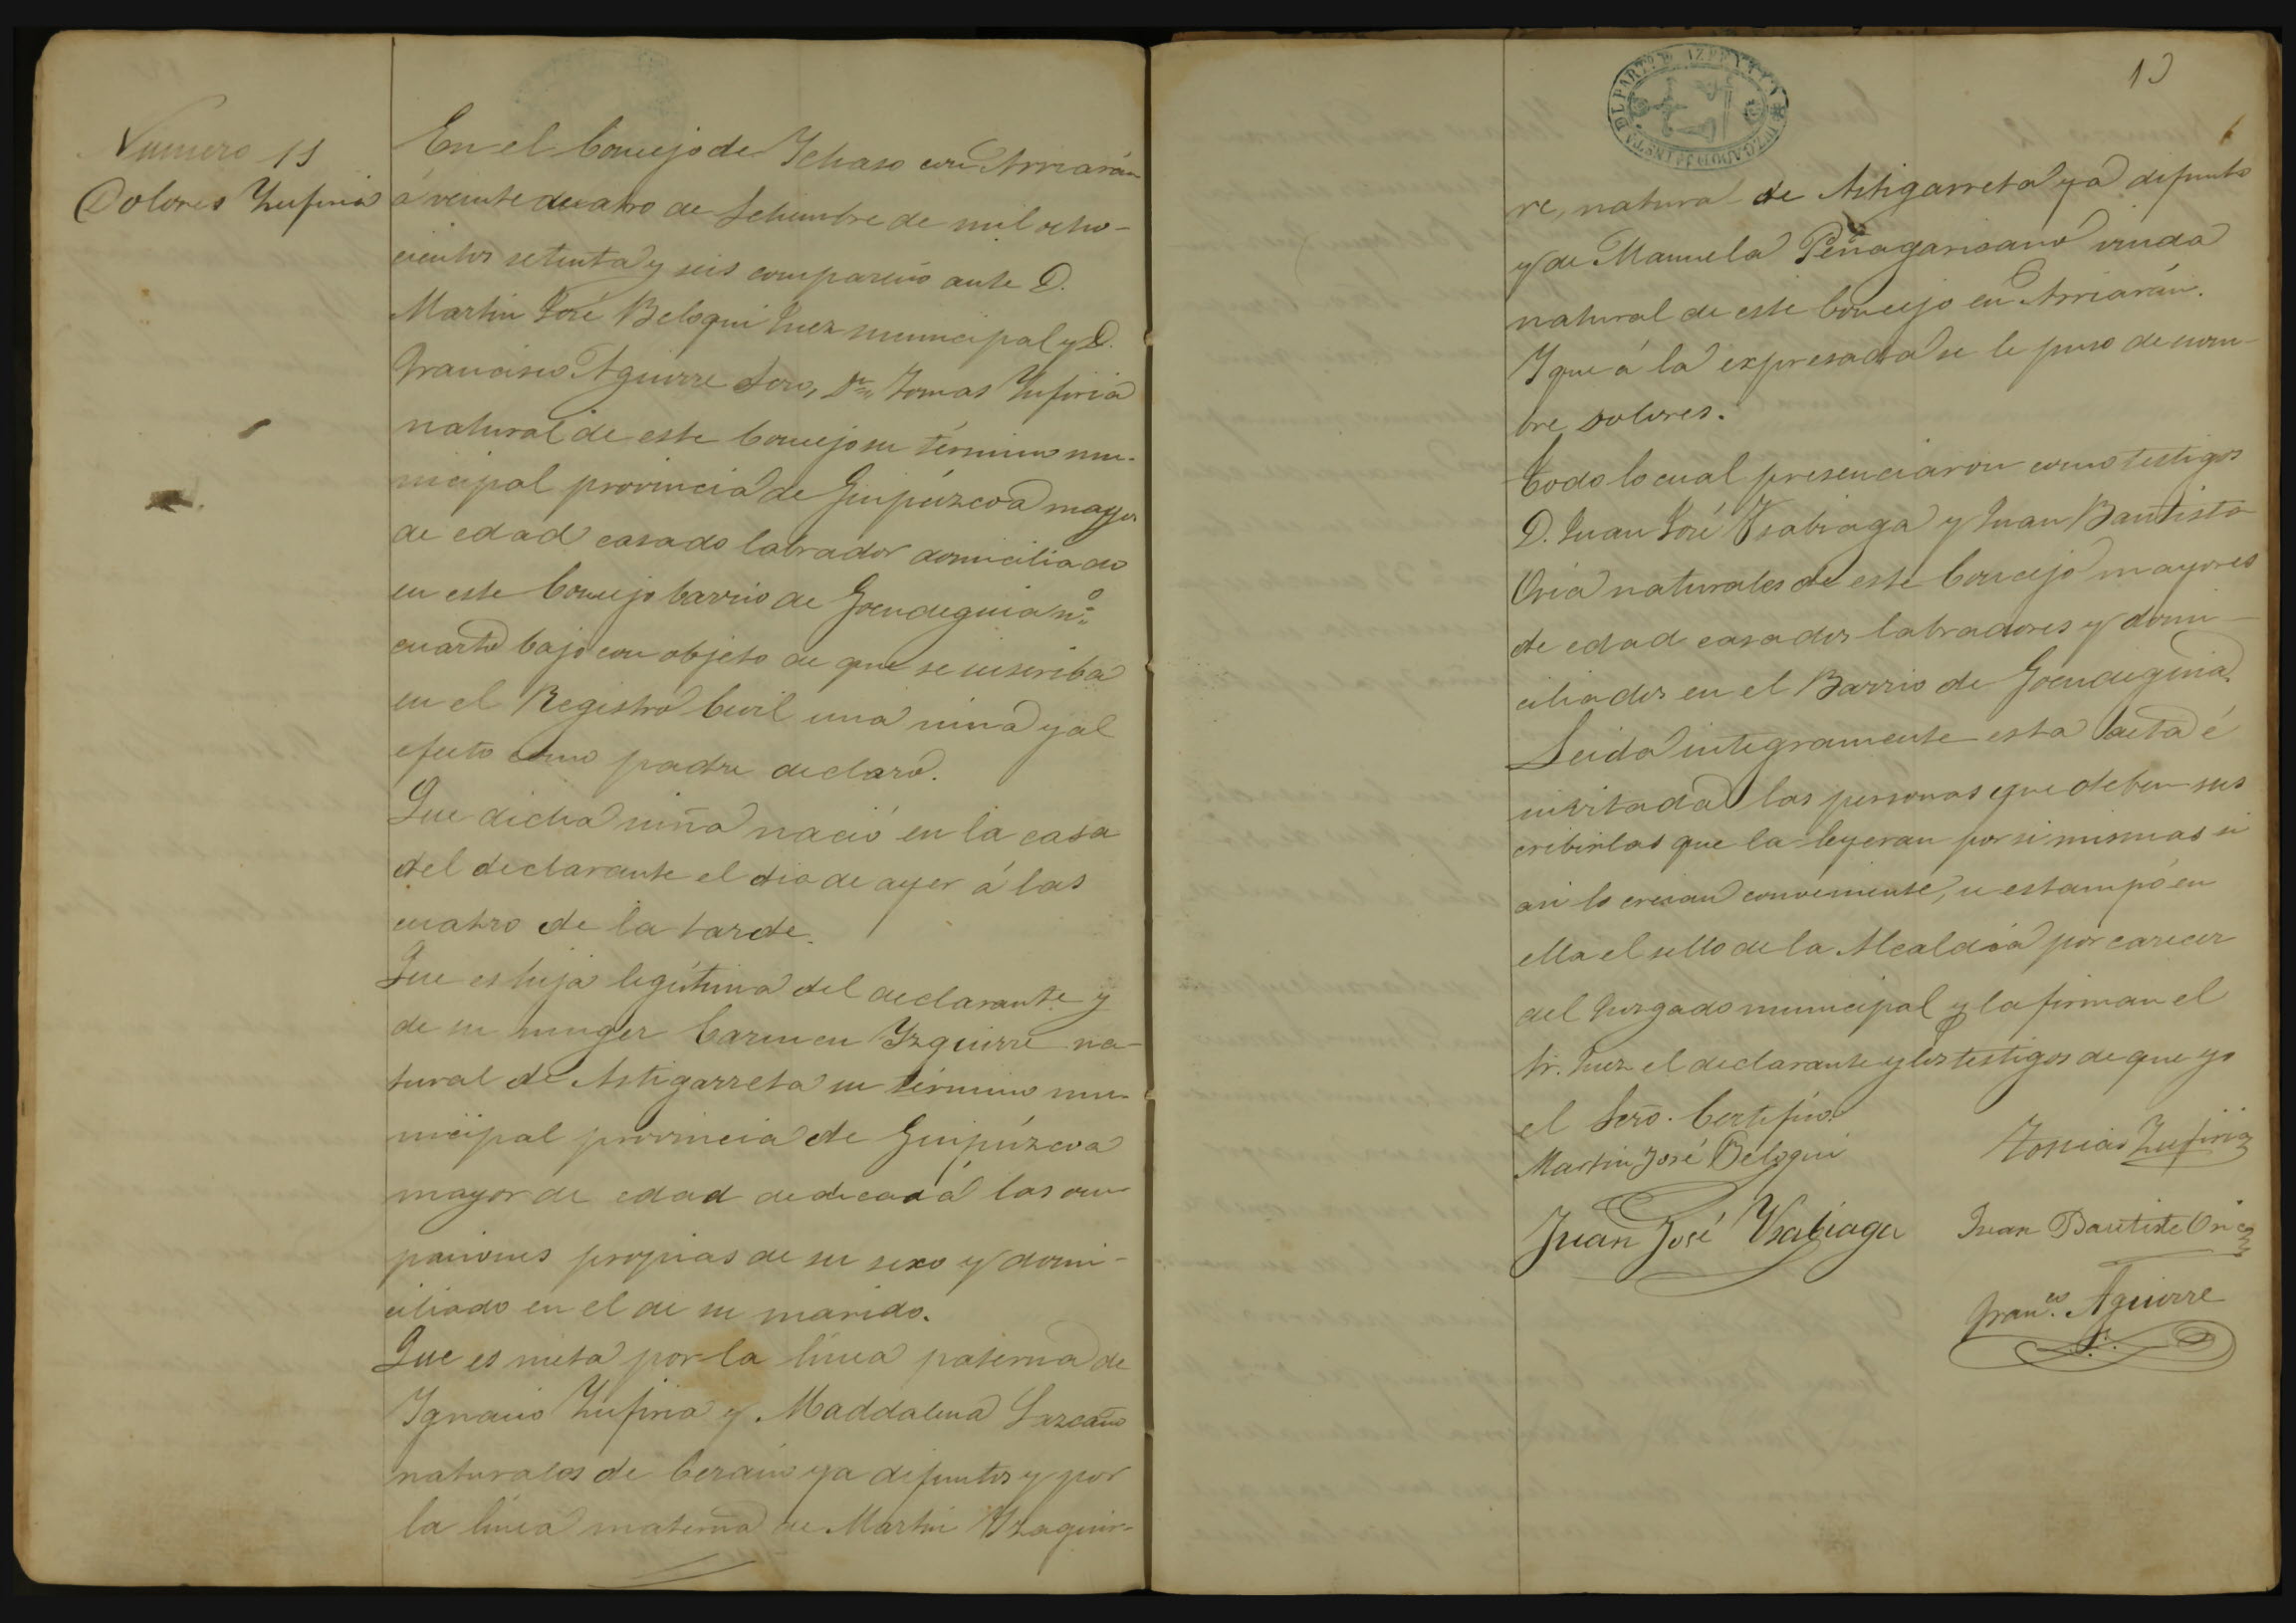 Numero 11
Dolores Zufiria
En el Concejo de Ychaso con Arriarán
á veinte cuatro de Setiembre de mil ocho-
cientos setenta y seis compareció ante D.
Martin José Beloqui Juez municipal y D.
Francisco Aguirre Srio, Dn Tomas Zufiria
natural de este Concejo su término mu-
nicipal provincia de Guipúzcoa mayor
de edad casado labrador domiciliado
en este Concejo barrio de Goendeguia nº
cuarto bajo con objeto de que se inscriba
en el Registro Civil una niña y al
efecto como padre declaró.
Que dicha niña nació en la casa
del declarante el dia de ayer á las
cuatro de la tarde.
Que es hija legítima del declarante y
de su muger Carmen Yzguirre na-
tural de Astigarreta su término mu-
nicipal provincia de Guipúzcoa
mayor de edad dedicada á las ocu-
paciones propias de su sexo y domi-
ciliado en el de su marido.
Que es nieta por la línea paterna de
Ygnacio Zufiria y Maddalena Lazcano
naturales de Cerain ya difuntos y por
la línea materna de Martin Yzaguir-
13
JUZGADO DE 1ª INSTA DEL PART. DE AZPEITIA
re, natural de Astigarreta ya difunto
y de Manuela Peñagaricano viuda
natural de este Concejo en Arriarán.
Y que á la expresada se le puso de nom-
bre Dolores.
Todo lo cual presenciaron como testigos
D. Juan José Ysabiaga y Juan Bautista
Oria naturales de este Concejo mayores
de edad casados labradores y domi-
ciliados en el Barrio de Goendeguia.
Leida integramente esta acta é
invitada las personas que deben sus
cribirlas que la leyeran por si mismas si
asi lo creian conveniente, se estampó en
ella el sello de la Alcaldia por carecer
del Juzgado municipal y la firman el
Sr. Juez el declarante y los testigos de que yo
el Srio. Certifico.
Martin José Beloqui
Tomas Zufiria
Juan José Ysabiaga
Juan Bautista Oria
Franco. Aguirre